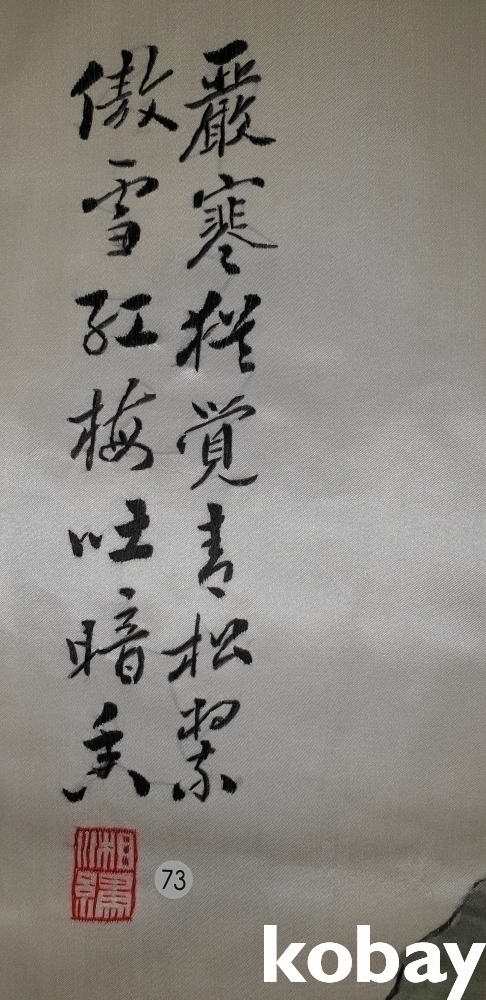 嚴寒猶覺青松絜
傲雪紅梅吐暗香
湘繡
73
kobay